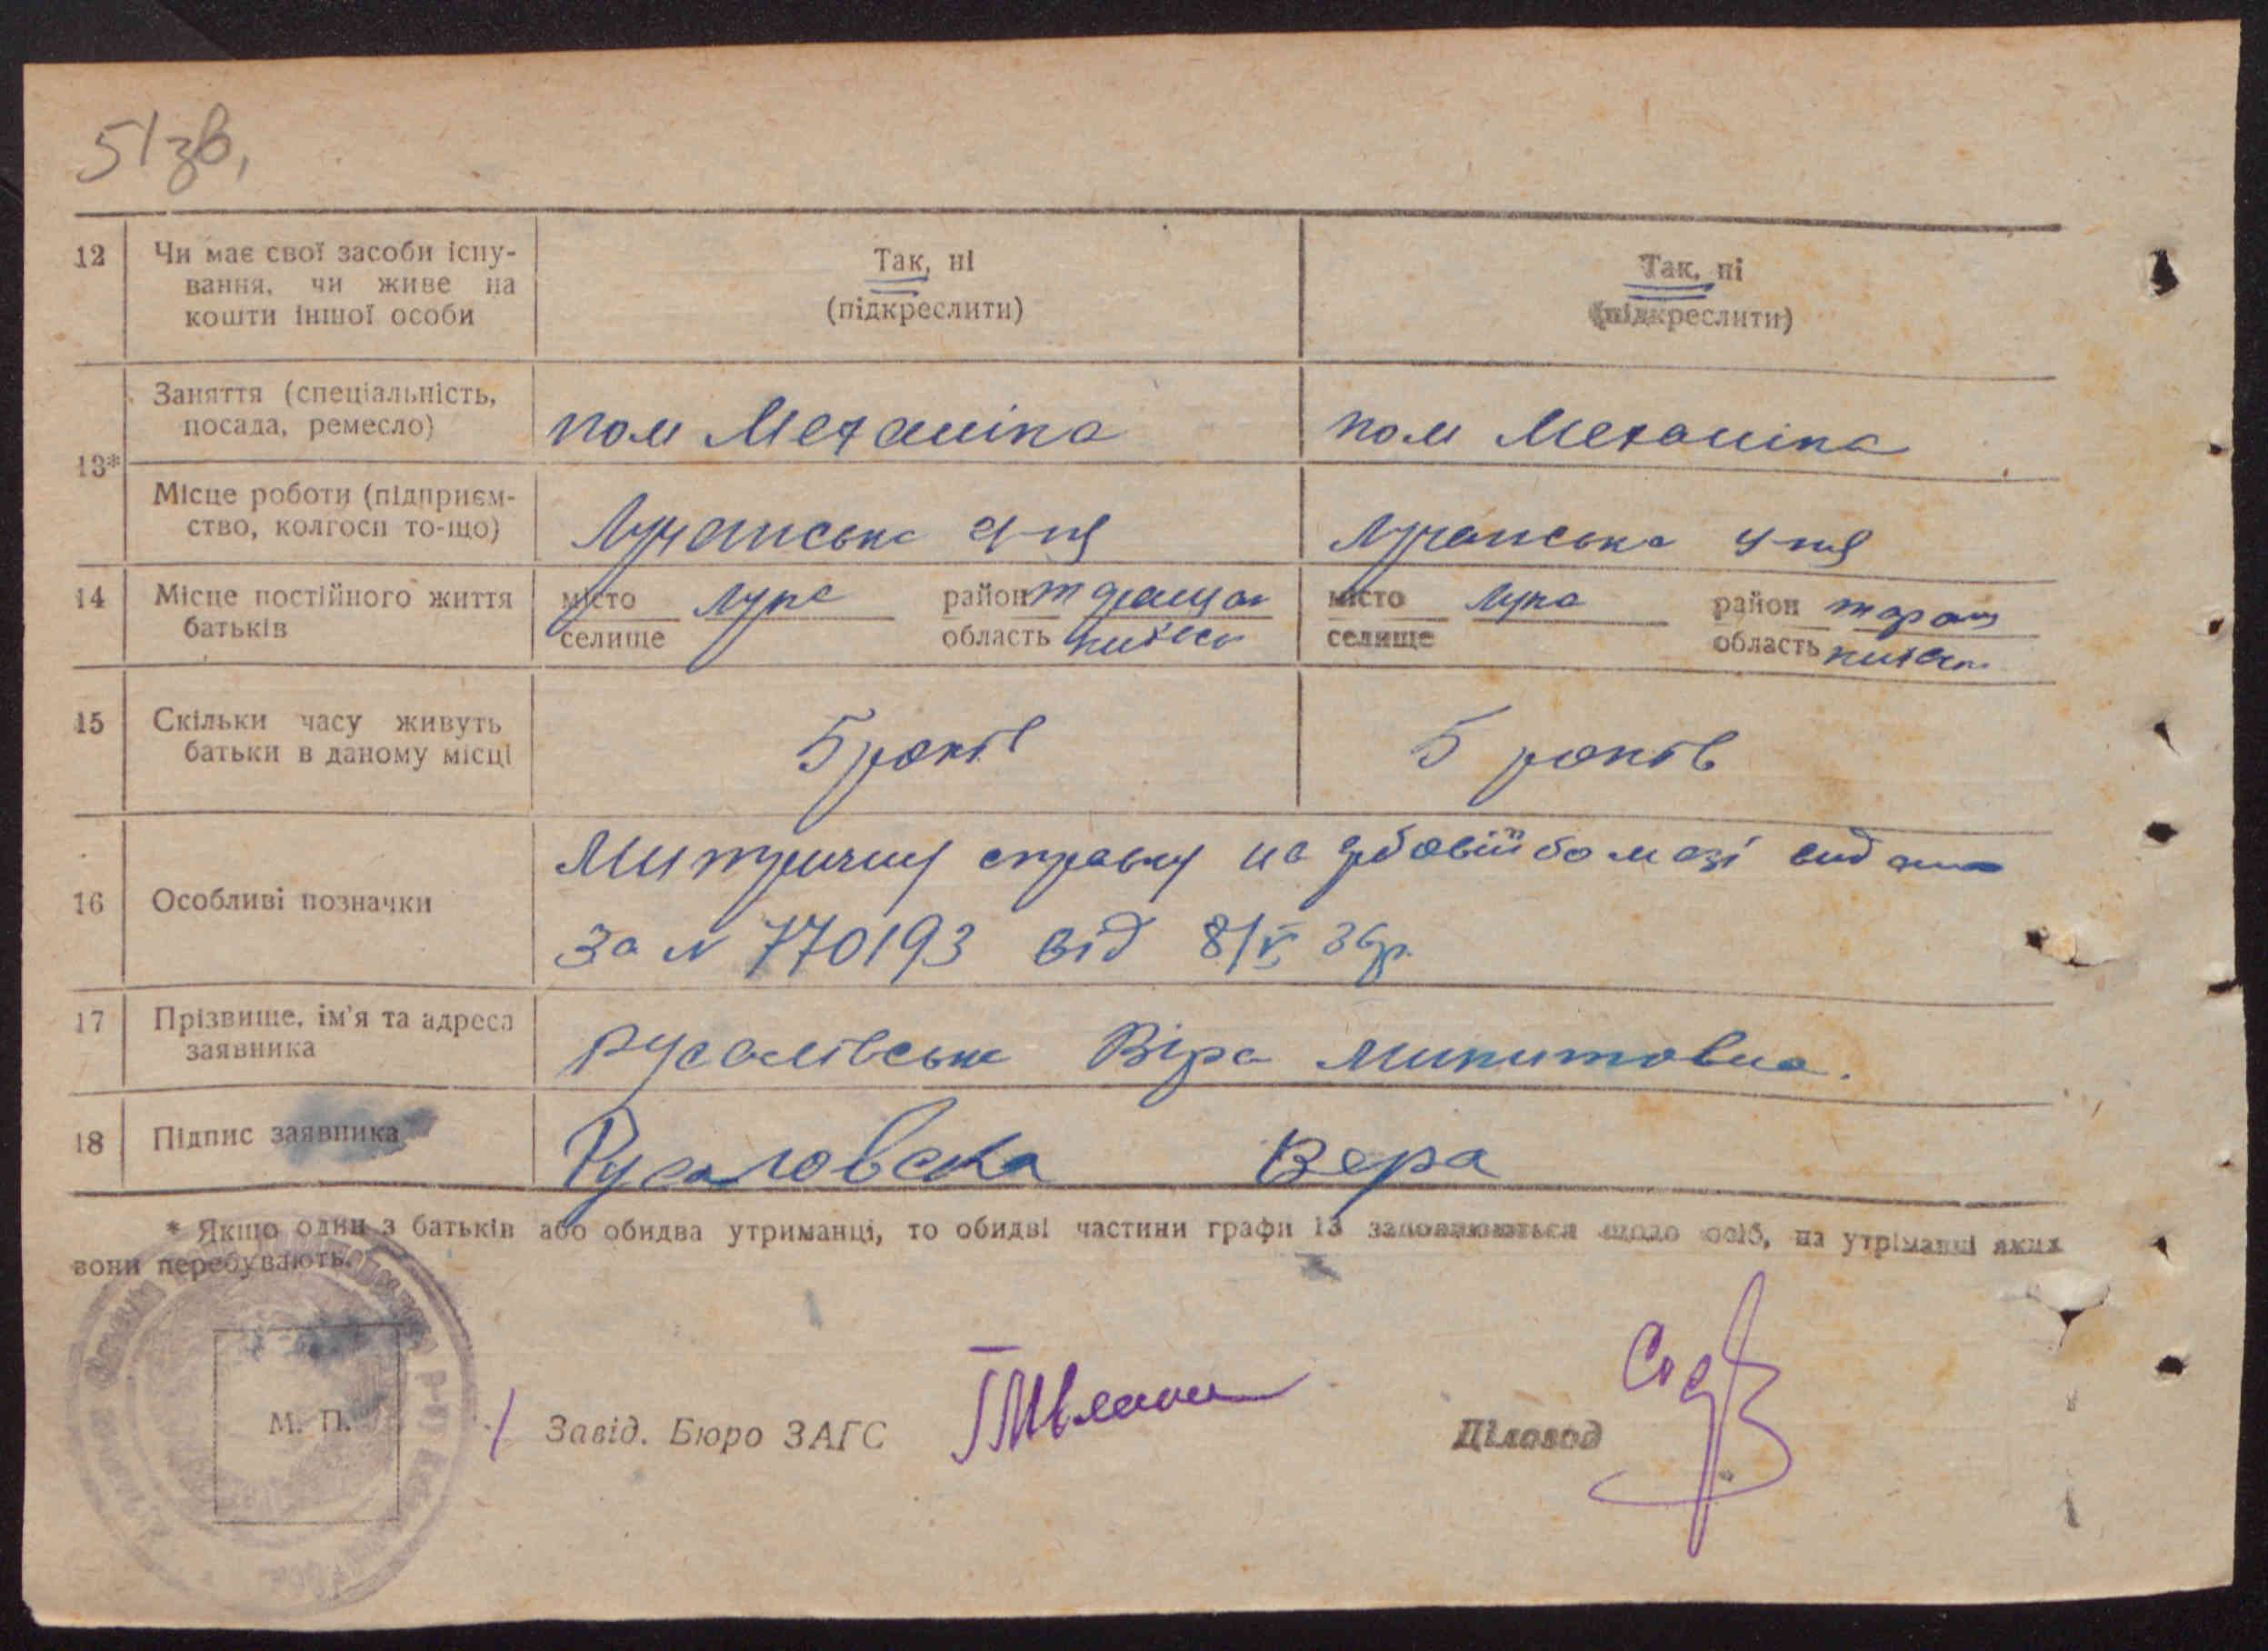 51зв,
12 Чи має свої засоби існу-
вання, чи живе на
кошти іншої особи
Так, ні
(підкреслити)
Так, ні
(підкреслити)
13*
Заняття (спеціальність,
посада, ремесло)
пом Механіка
пом Механіка
Місце роботи (підприєм-
ство, колгосп то-що)
14 Місце постійного життя
батьків
місто Лука район
селище область
місто Лука район тращ
селище область
15 Скільки часу живуть
батьки в даному місці
5 років
5 років
16 Особливі позначки
Митричну справку на гербовій бомазі видана
За N 770193 від 8/V 36р.
17 Прізвище, ім'я та адреса
заявника
Русалівська Віра Микитовна.
18 Підпис заявника
Русаловска Вера
* Якщо один з батьків або обидва утриманці, то обидві частини графи 13 заповнюються щодо осіб, на утріманні яких
вони перебувають.
М. П.
Завід. Бюро ЗАГС
Діловод